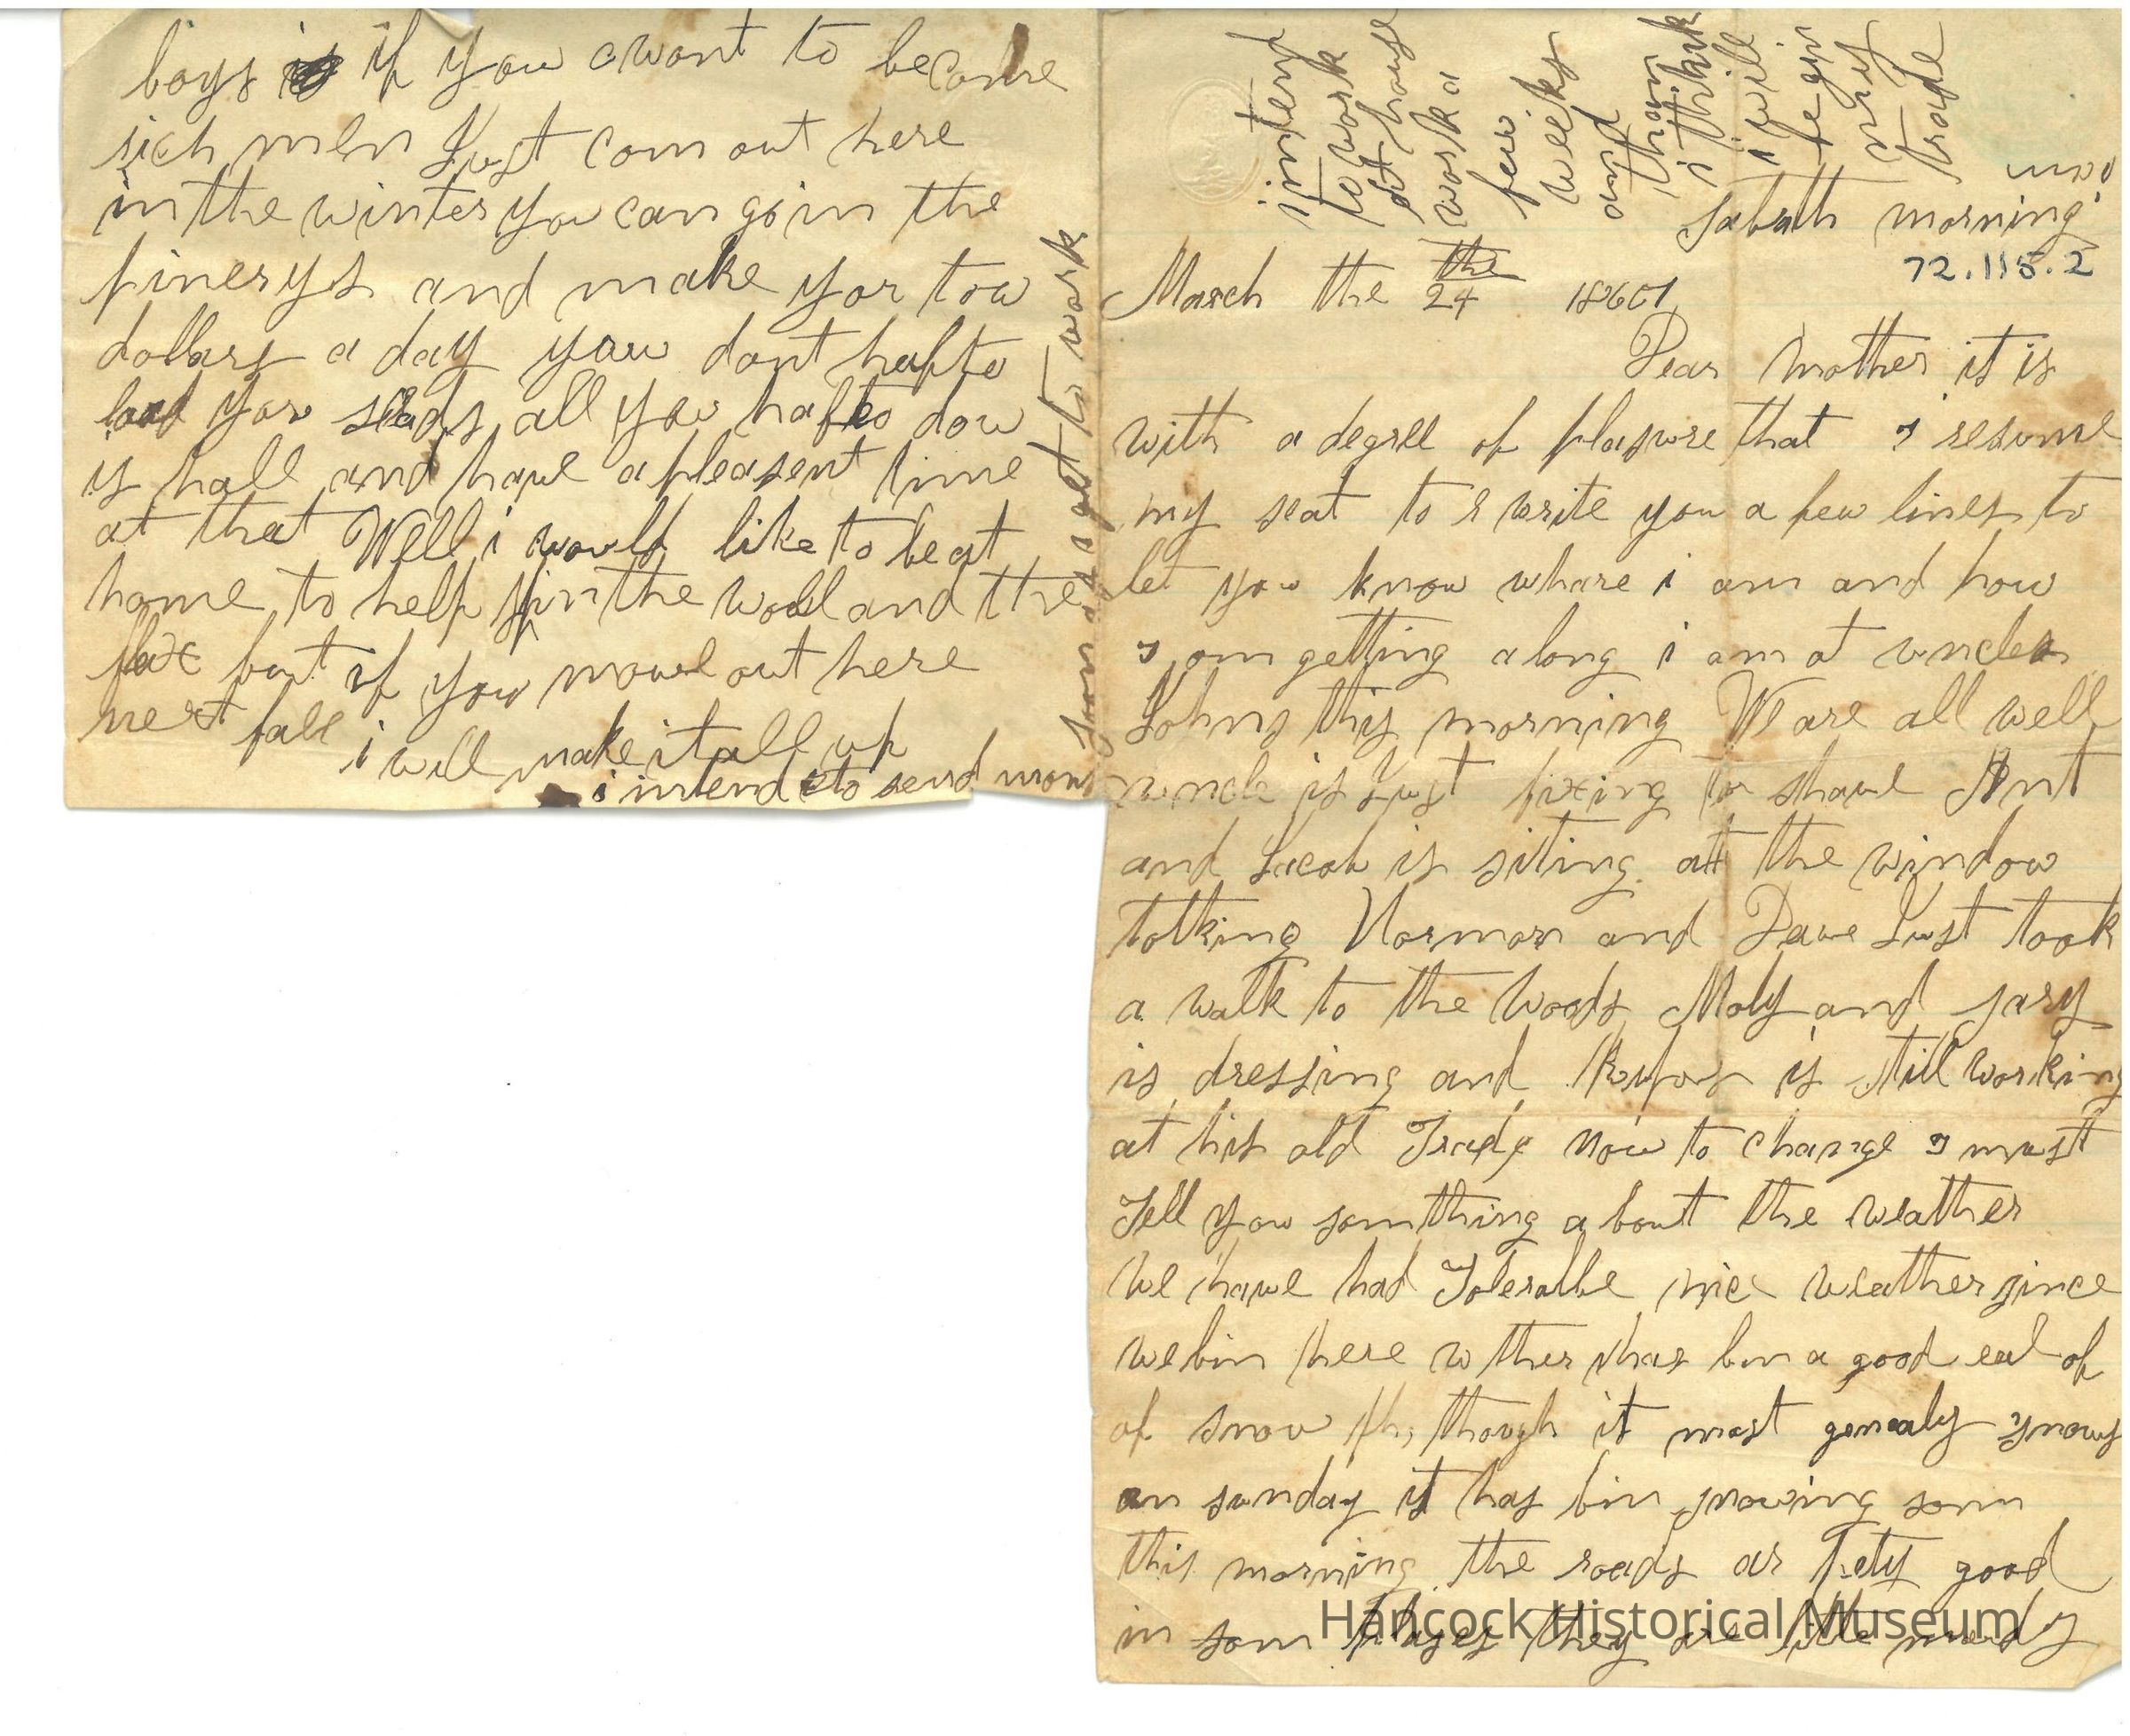 boys if you want to become
rich men Just com out here
in the winter you can go in the
pinerys and make yor tow
dollars a day you dont hafto
load yor sleds all you hafto dow
is hall and have a pleasent time
at that Well i would like to be at
home to help spin the wooll and the
flax but if you move out here
next fall i will make it all up
i intend to send mony
soon as i get to work
intend
to work
at house
work a
few
weeks
and
than
i think
i will
begin
my
trade
Sabath morning
72.115.2
March the 24 the 1860
Dear Mother it is
with a degree of plasure that I resume
my seat to write you a few lines to
let you know whare i am and how
I am getting along i am at uncle
Johns this morning We are all well
uncle is Just fixing to shave Ant
and Jacob is siting at the window
tolking Norman and Dave Just took
a walk to the Woods Moly and sary
is dressing and Rufus is still working
at his old Trade now to change I must
Tell you somthing a bout the weather
We have had Tolerable nice weather since
we bin here ther has bin a good eal of
of snow though it most genealy snows
on sunday it has bin snowing som
this morning the roads ar Prety good
in som plases they are little muddy
Hancock Historical Museum